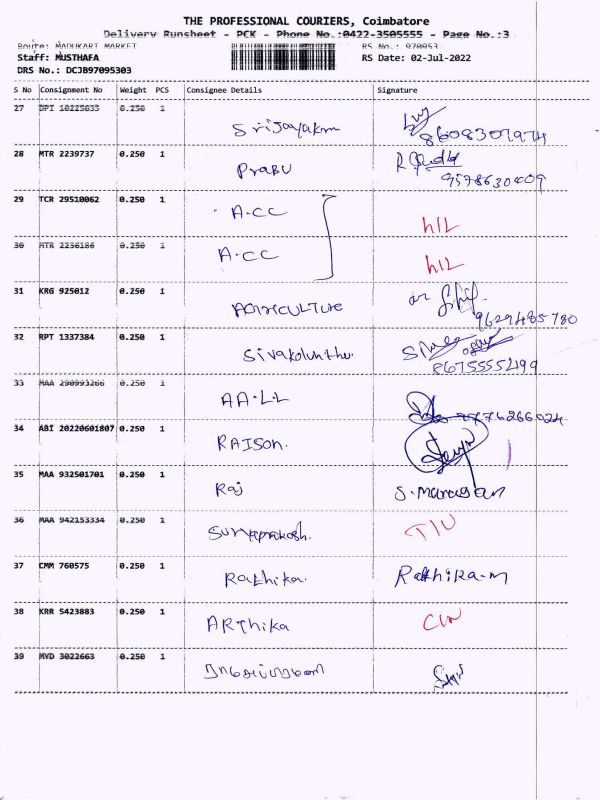 THE PROFESSIONAL COURIERS, Coimbatore
Delivery Runsheet - PCK - Phone No.:0422-3505555 - Page No.:3
Route: MADUKARI MARKET
RS No.: 970953
Staff: MUSTHAFA
RS Date: 02-Jul-2022
DRS No.: DCJB97095303
S No Consignment No Weight PCS Consignee Details Signature
27 DPI 10225655 0.250 1 Srijayakm 8608307974
28 MTR 2239737 0.250 1 Prabu 9578630409
29 TCR 29510062 0.250 1 A.CC h/L
30 MTR 2236186 0.250 1 A.CC h/L
31 KRG 925012 0.250 1 AGIRICULTURE 9629485780
32 RPT 1337384 0.250 1 Sivakolunthu. 86755552199
33 MAA 290993266 0.250 1 AA.LL
34 ABI 20220601807 0.250 1 RAISON.
35 MAA 932501701 0.250 1 Raj S. Marugan
36 MAA 942153334 0.250 1 Suryaprakash.
37 CMM 760575 0.250 1 Rathika. Rathika-m
38 KRR 5423883 0.250 1 ARThika
39 MYD 3022663 0.250 1